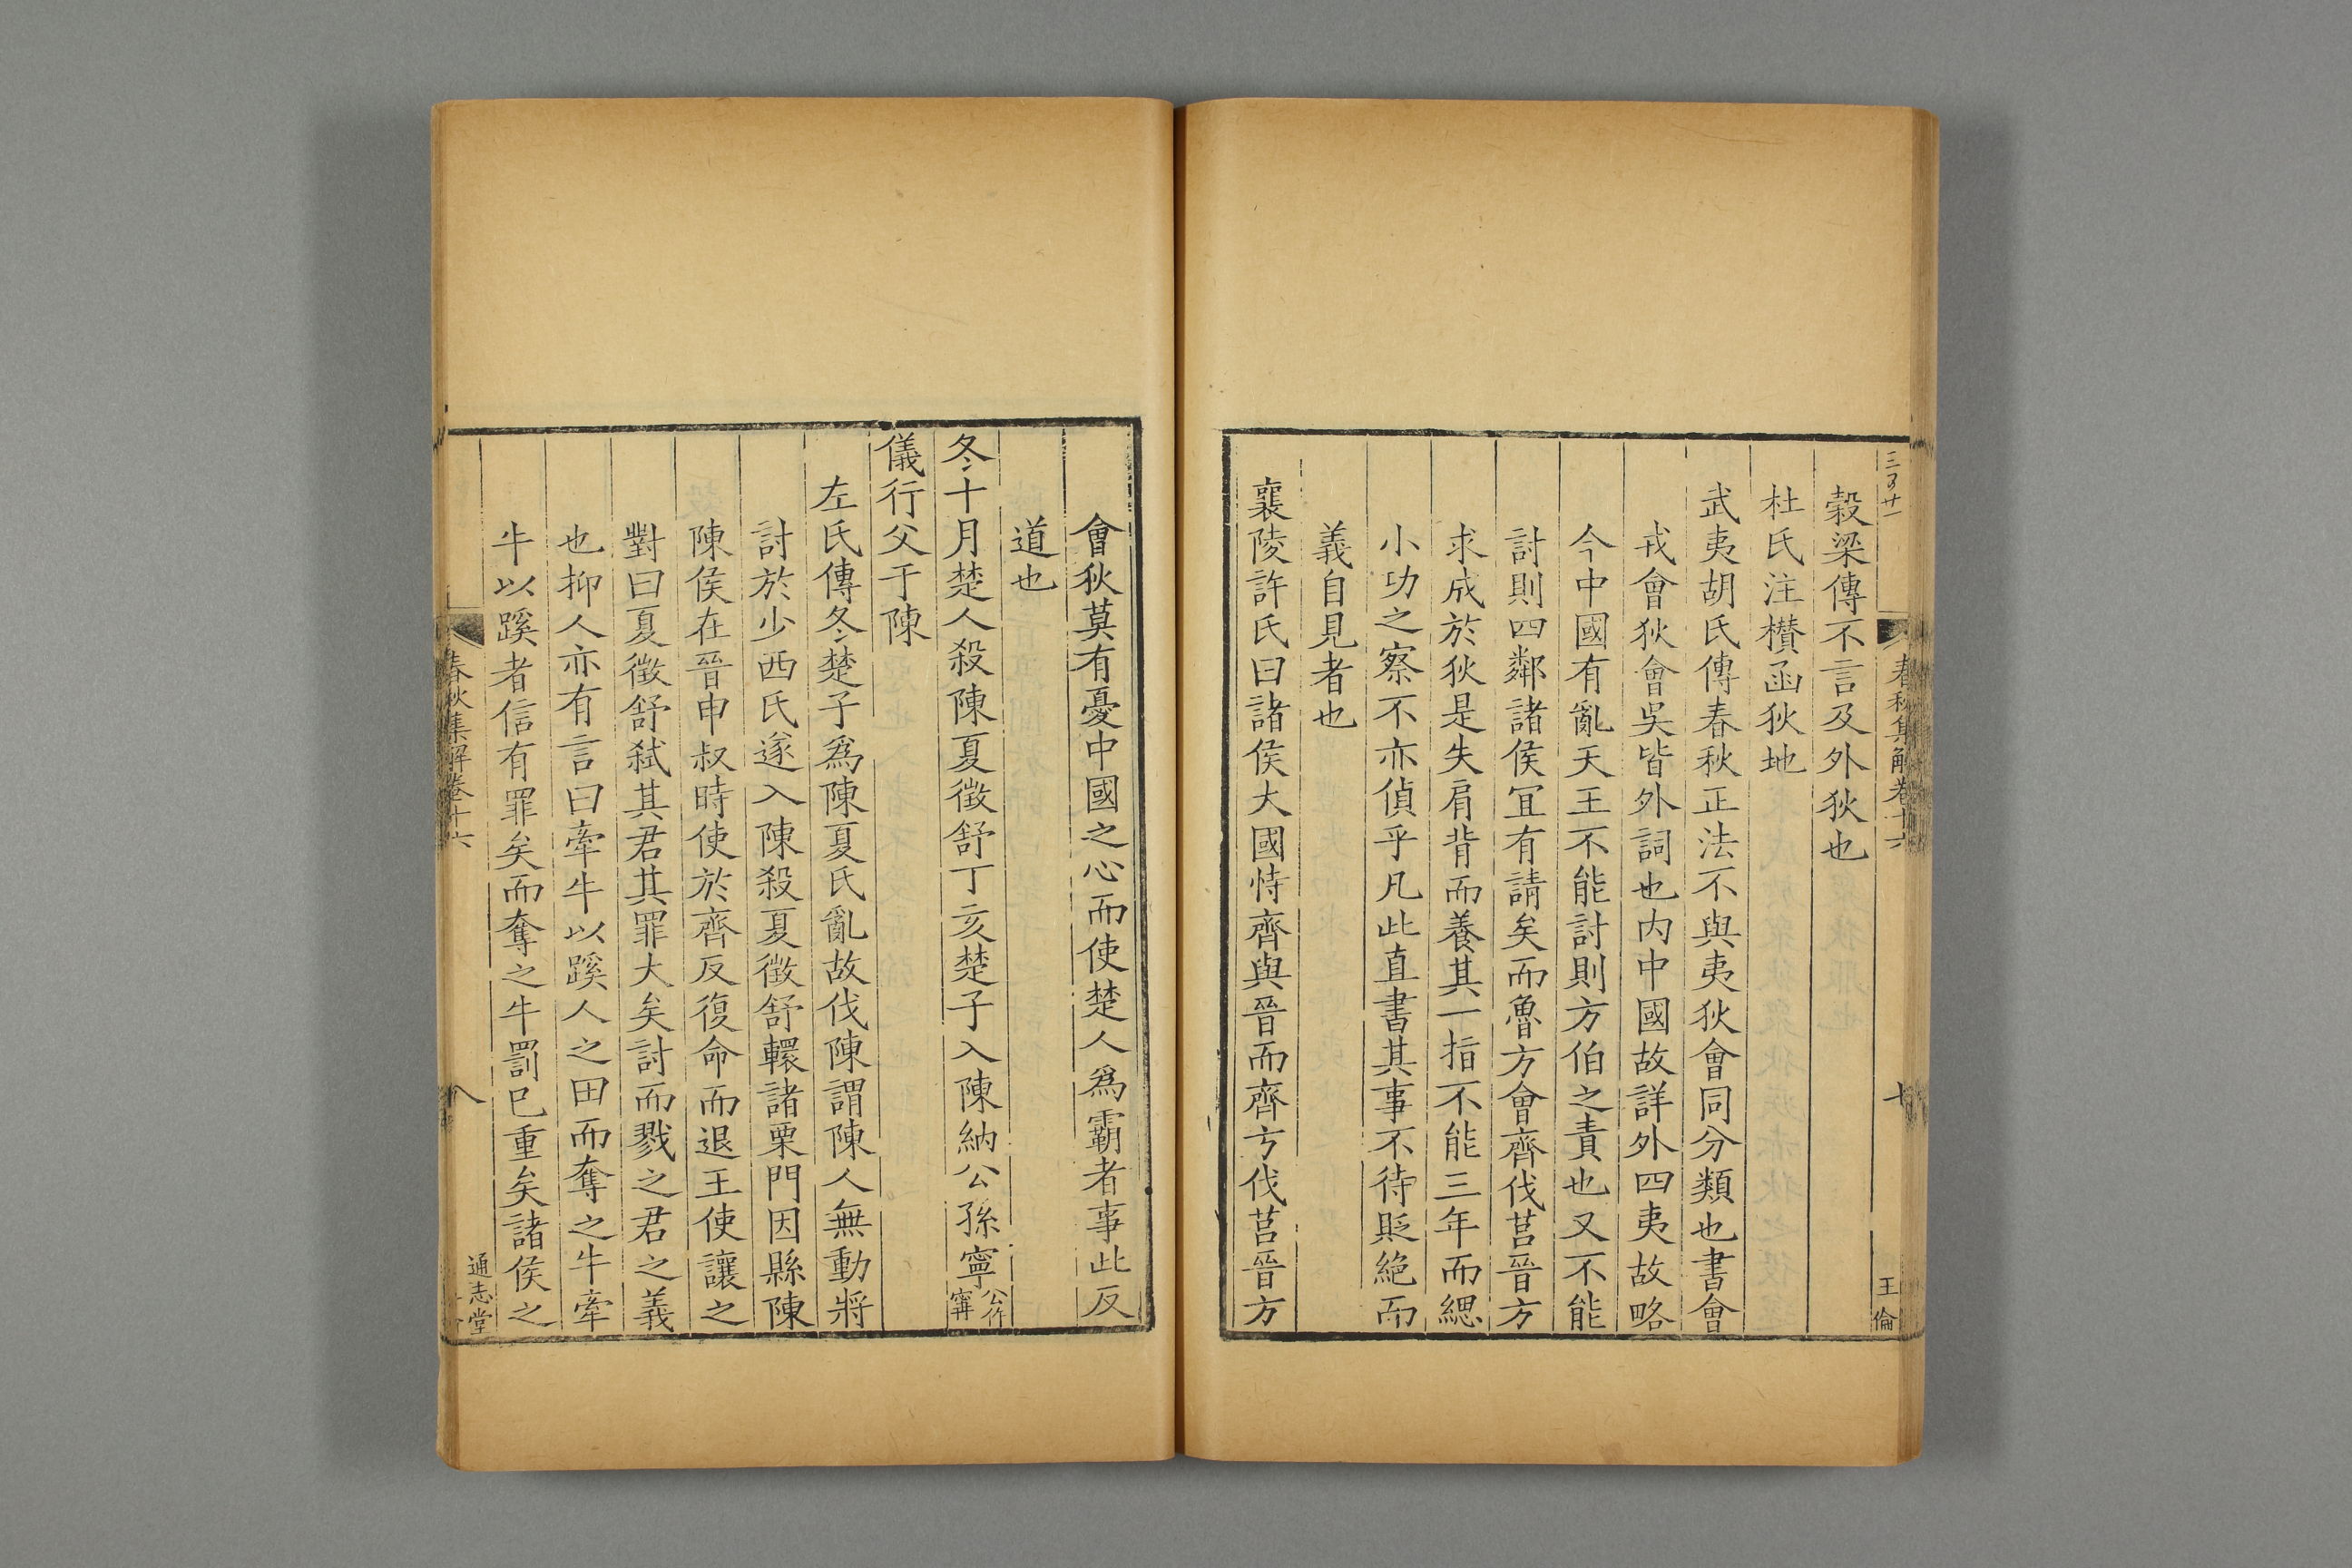 三百廿一
春秋集解卷十六
七
王倫
穀梁傳不言及外狄也
杜氏注欑函狄地
武夷胡氏傳春秋正法不與夷狄會同分類也書會
戎會狄會吳皆外詞也内中國故詳外四夷故略
今中國有亂天王不能討則方伯之責也又不能
討則四鄰諸侯冝有請矣而魯方會齊伐莒晉方
求成於狄是失肩背而養其一指不能三年而緦
小功之察不亦偵乎凡此直書其事不待貶絶而
義自見者也
襄陵許氏曰諸侯大國恃齊與晉而齊方伐莒晉方
會狄莫有憂中國之心而使楚人爲霸者事此反
道也
冬十月楚人殺陳夏徵舒丁亥楚子入陳納公孫寧公作甯
儀行父于陳
左氏傳冬楚子爲陳夏氏亂故伐陳謂陳人無動將
討於少西氏遂入陳殺夏徵舒轘諸栗門因縣陳
陳侯在晉申叔時使於齊反復命而退王使讓之
對曰夏徵舒弑其君其罪大矣討而戮之君之義
也抑人亦有言曰牽牛以蹊人之田而奪之牛牽
牛以蹊者信有罪矣而奪之牛罰已重矣諸侯之
春秋集解卷十六
八
通志堂